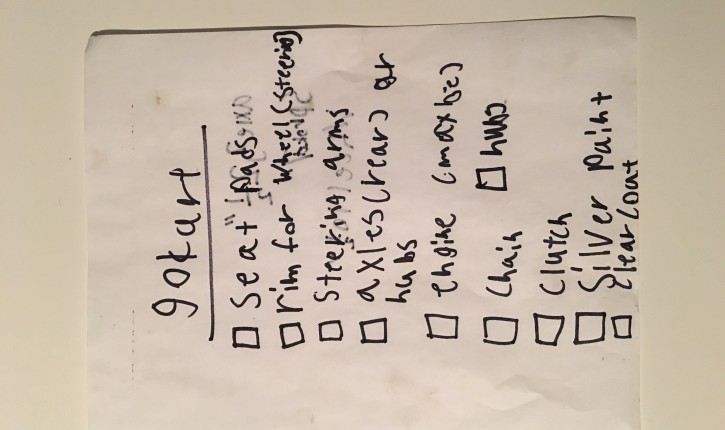 gokart
seat pads
rim for wheel (steering)
steering arms
axles (rear) or
hubs
engine (maxbie)
chain hubs
clutch
Silver paint
clear coat